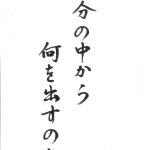 分の中から
何を出すの